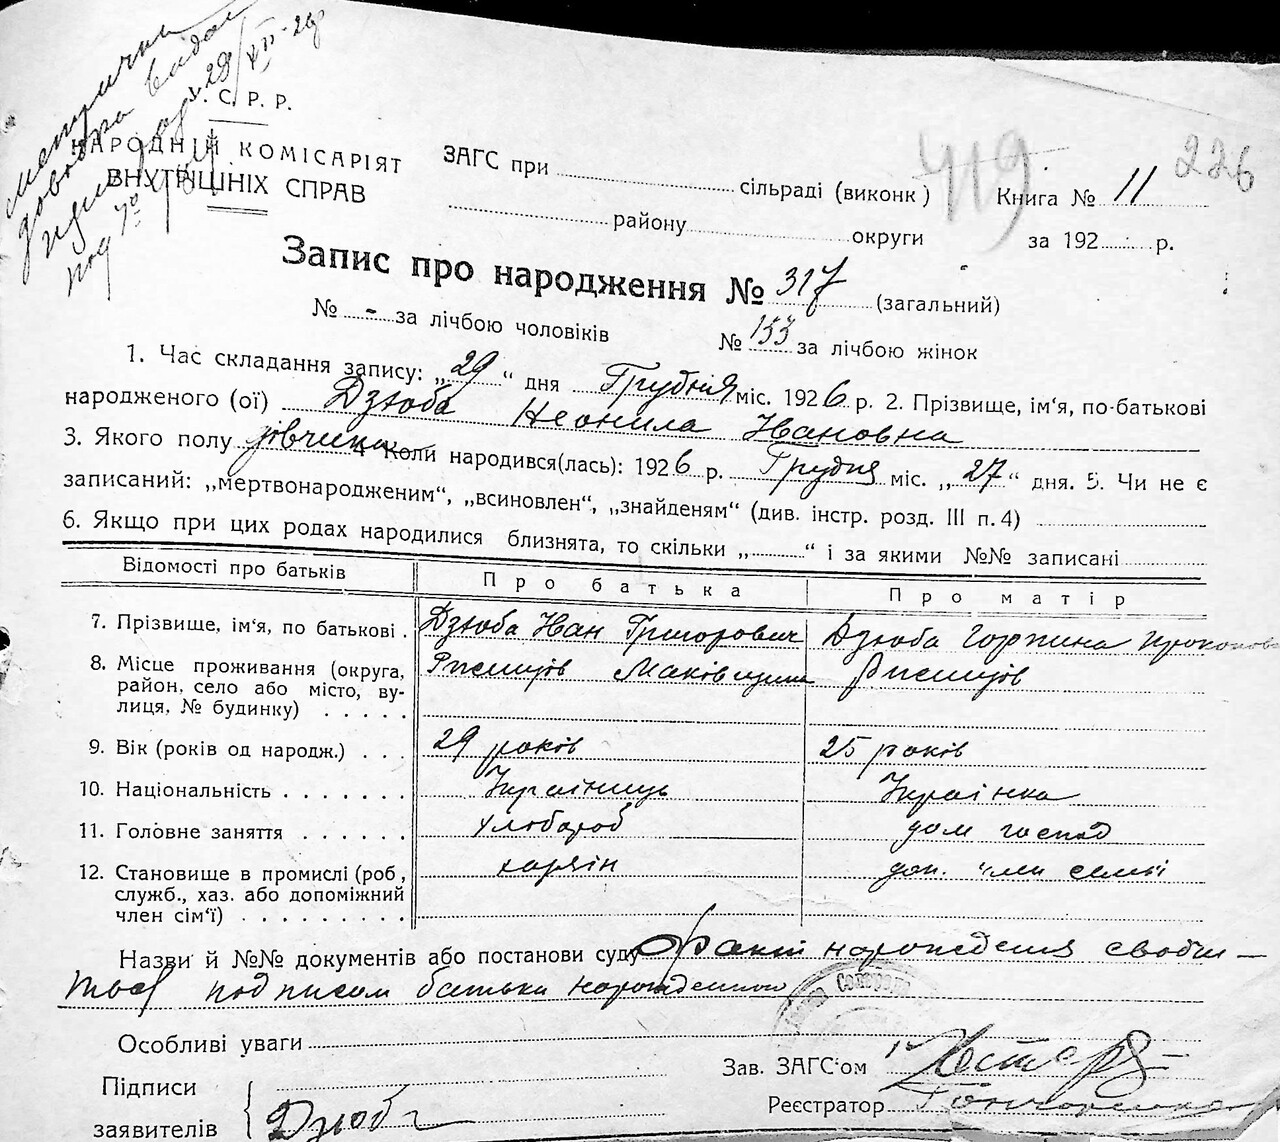 Метрична
довідка видан
29/XII-26р
С. Р. Р.
НАРОДНІЙ КОМІСАРІЯТ
ВНУТРІШНІХ СПРАВ
ЗАГС при сільраді (виконк)
району округи
419
226
Книга № 11
за 192 р.
Запис про народження № 317 (загальний)
№ - за лічбою чоловіків № 153 за лічбою жінок
1. Час складання запису: „29“ дня Грудня міс. 1926 р. 2. Прізвище, ім'я, по-батькові
народженого (ої) Дзюба Неонила Івановна
3. Якого полу дівчина 4 Коли народився(лась): 1926 р. Грудня міс. „27“ дня. 5. Чи не є
записаний: „мертвонародженим“, „всиновлен“, „знайденям“ (див. інстр. розд. III п. 4)
6. Якщо при цих родах народилися близнята, то скільки „ “ і за якими №№ записані
Відомості про батьків Про батька Про матір
7. Прізвище, ім'я, по батькові . Дзюба Иван Григорович Дзюба Горпина Прокопов
8. Місце проживання (округа, район, село або місто, вулиця, № будинку) . . . . .
9. Вік (років од народж.) . . . 29 років 25 років
10. Національність . . . . . . . Українець Українка
11. Головне заняття . . . . . . хлібороб дом господ
12. Становище в промислі (роб, хазяін доп. член семьі
служб., хаз. або допоміжний
член сім'ї) . . . . . . . . .
Назви й №№ документів або постанови суду Факт народження свобчи–
ться подписом батька народженного
Особливі уваги
Підписи
заявителів Дзюба
Зав. ЗАГС'ом
Реєстратор